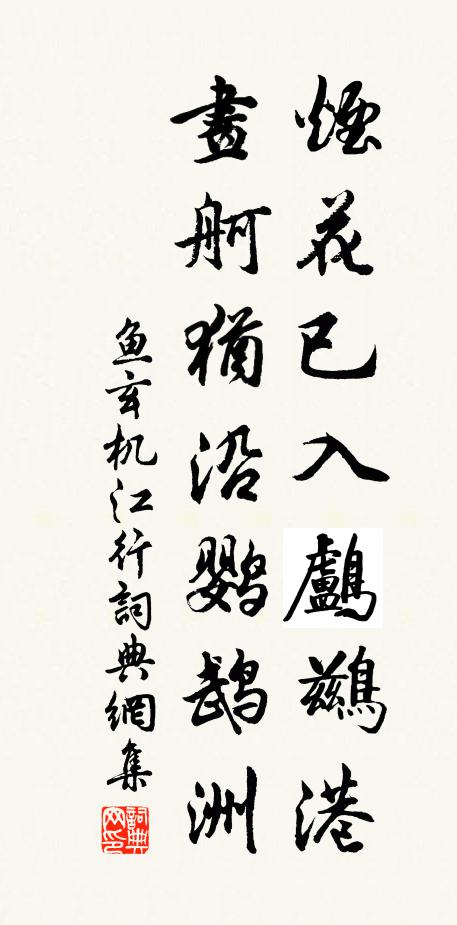 煙花已入鸕鷀港
畫舸猶沿鸚鵡洲
鱼玄机江行詞典網集
詞典网印